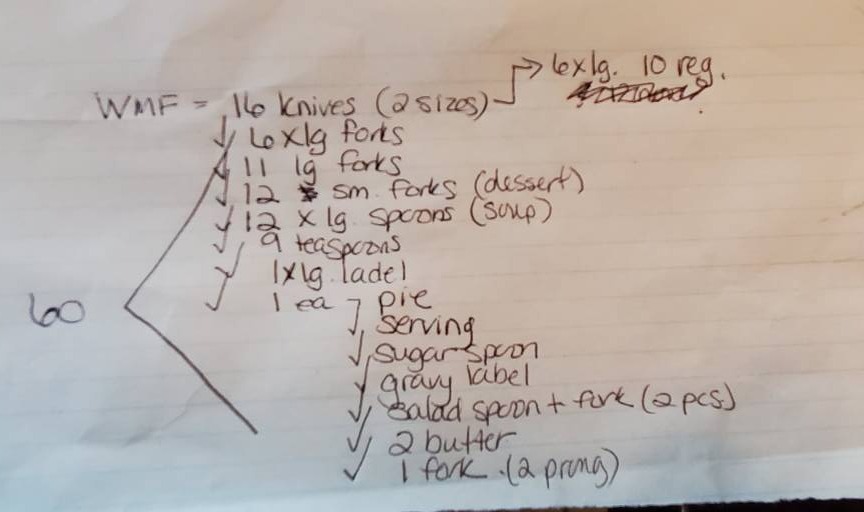 6xlg. 10 reg.
WMF = 16 knives (2 sizes)
6xlg forks
11 lg forks
12 sm. forks (dessert)
12 xlg. spoons (soup)
9 teaspoons
1xlg. ladel
1 ea pie
serving
sugar spoon
gravy label
salad spoon + fork (2 pcs)
2 butter
1 fork. (2 prong)
60